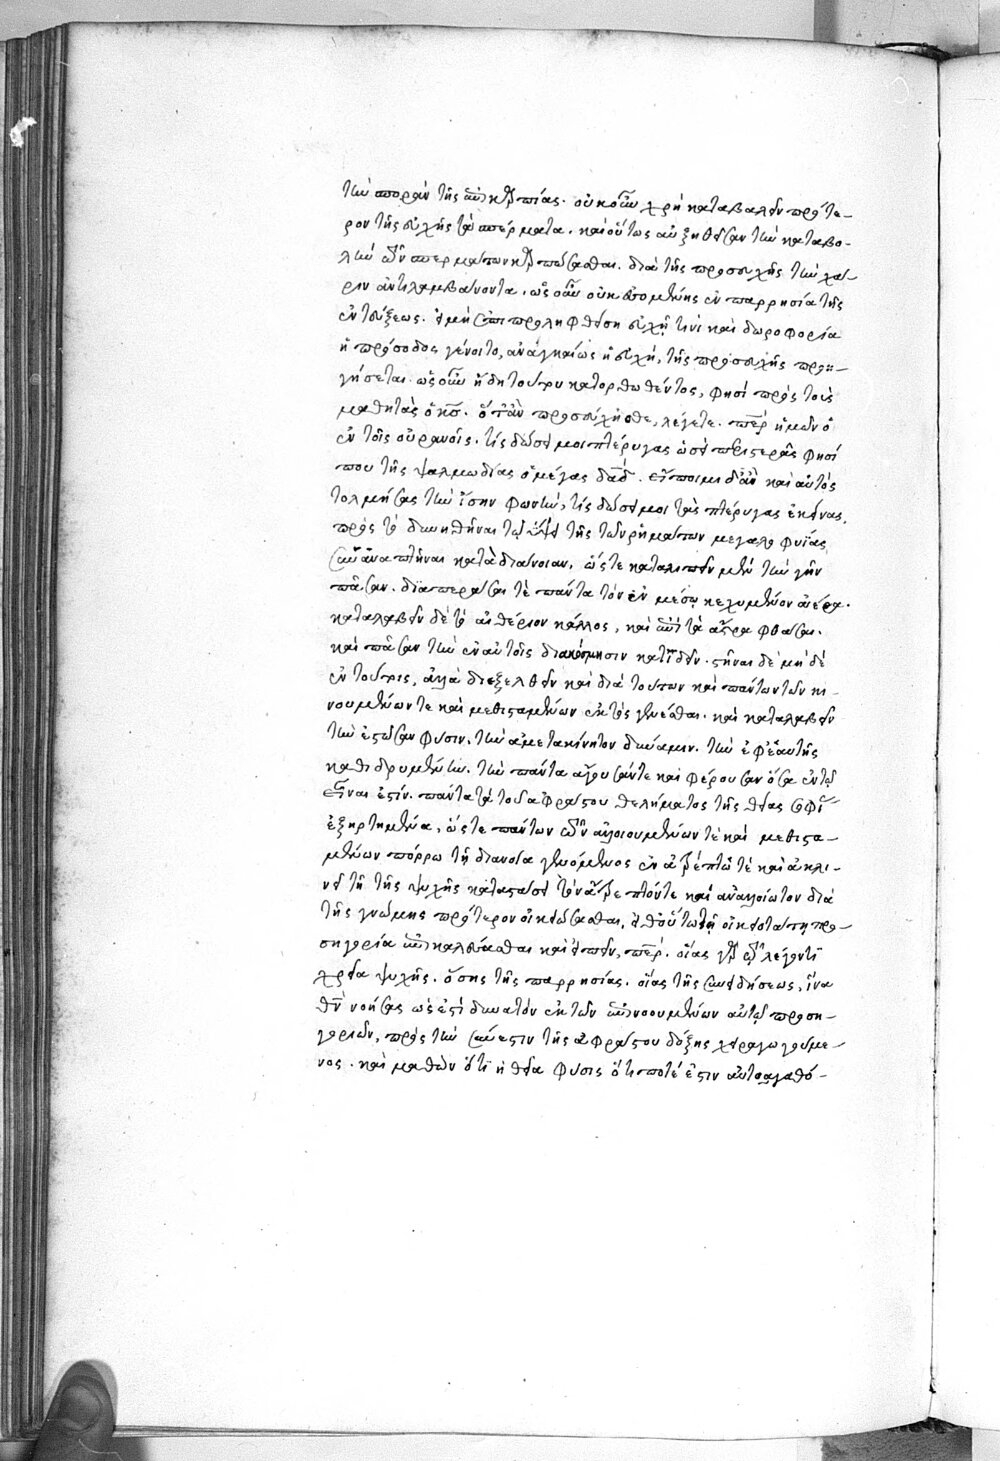 τὴν σπορὰν τῆς ἐπικαρπίας. οὐκοῦν χρὴ καταβαλεῖν πρότε-
ρον τῆς εὐχῆς τὰ σπέρματα. καὶ οὕτως αὐξηθεῖσαν τὴν καταβο-
λὴν τῶν σπερμάτων καρπώσασθαι. διὰ τῆς προσευχῆς τὴν χά-
ριν ἀντιλαμβάνοντα. ὡς οὖν οὐκ ἑπομένης ἐν παρρησία τῆς
ἐντεύξεως. εἰ μὴ ἐπὶ προληφθείση εὐχῇ τινὶ καὶ δωροφορία
ἡ πρόσοδος γένοιτο, ἀναγκαίως ἡ εὐχὴ, τῆς προσευχῆς προη-
γήσεται. ὡς οὖν ἤδη τούτου κατορθωθέντος, φησὶ πρὸς τοὺς
μαθητὰς ὁ κσ. ὅταν προσεύχησθε, λέγετε. περ ἡμῶν ὁ
ἐν τοῖς οὐρανοῖς. τίς δώσει μοι πτέρυγας ὡσεὶ περιστερᾶς φησί
που τῆς ψαλμωδίας ὁ μέγας δαδ. εἴποιμι δ' ἂν καὶ αὐτὸς
τολμήσας τὴν ἴσην φωνὴν, τίς δώσει μοι τὰς πτέρυγας ἐκείνας,
πρὸς τὸ δυνηθῆναι τῷ ὕψει τῆς τῶν ῥημάτων μεγαλοφυΐας
συναναπτῆναι κατὰ διάνοιαν, ὥστε καταλιπεῖν μὲν τὴν γῆν
πᾶσαν. διαπερᾶσαι τὲ πάντα τὸν ἐν μέσῳ κεχυμένον ἀέρα.
καταλαβεῖν δὲ τὸ αἰθέριον κάλλος, καὶ ἐπὶ τὰ ἄστρα φθάσαι.
καὶ πᾶσαν τὴν ἐν αὐτοῖς διακόσμησιν κατϊδεῖν. στῆναι δὲ μηδὲ
ἐν τούτοις, ἀλλὰ διεξελθεῖν καὶ διὰ τούτων καὶ πάντων τῶν κι-
νουμένων τε καὶ μεθισταμένων ἐκτὸς γενέσθαι. καὶ καταλαβεῖν
τὴν ἑστῶσαν φύσιν. τὴν ἀμετακίνητον δύναμιν. τὴν ἐφ' ἑαυτῆς
καθιδρυμένην. τὴν πάντα ἄγουσάν τε καὶ φέρουσαν ὅσα ἐν τῷ
εἶναι ἐστίν. πάντα τὰ τοῦ ἀφράστου θελήματος τῆς θείας σοφί
ἐξηρτημένα, ὥστε πάντων τῶν ἀλλοιουμένων τὲ καὶ μεθιστα-
μένων πόρρω τῇ διανοία γενόμενος ἐν ἀτρέπτῳ τὲ καὶ ἀκλι-
νεῖ τῇ τῆς ψυχῆς καταστάσει τὸν ἄτρεπτόν τε καὶ ἀναλλοίωτον διὰ
τῆς γνώμης πρότερον οἰκειώσασθαι, εἶθ' οὕτω τῇ οἰκειοτάτη προ-
σηγορία ἐπικαλέσασθαι καὶ εἰπεῖν, περ. οἵας γὰρ τῶ λέγοντι
χρεία ψυχῆς. ὅσης τῆς παρρησίας. οἵας τῆς συνειδήσεως, ἵνα
θν νοήσας ὡς ἐστὶ δυνατὸν ἐκ τῶν ἐπινοουμένων αὐτῷ προση-
γοριῶν, πρὸς τὴν σύνεσιν τῆς ἀφράστου δόξης χειραγωγούμε-
νος. καὶ μαθὼν ὅτι ἡ θεία φύσις ὅτι ποτέ ἐστιν αὐτοαγαθό-